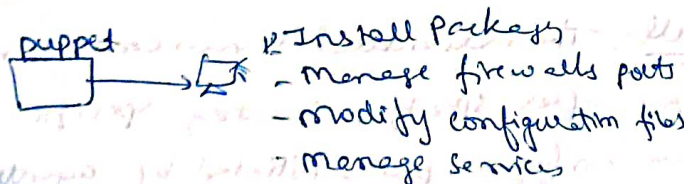 puppet
Install packages
- Manage firewalls ports
- modify configuration files
- manage services